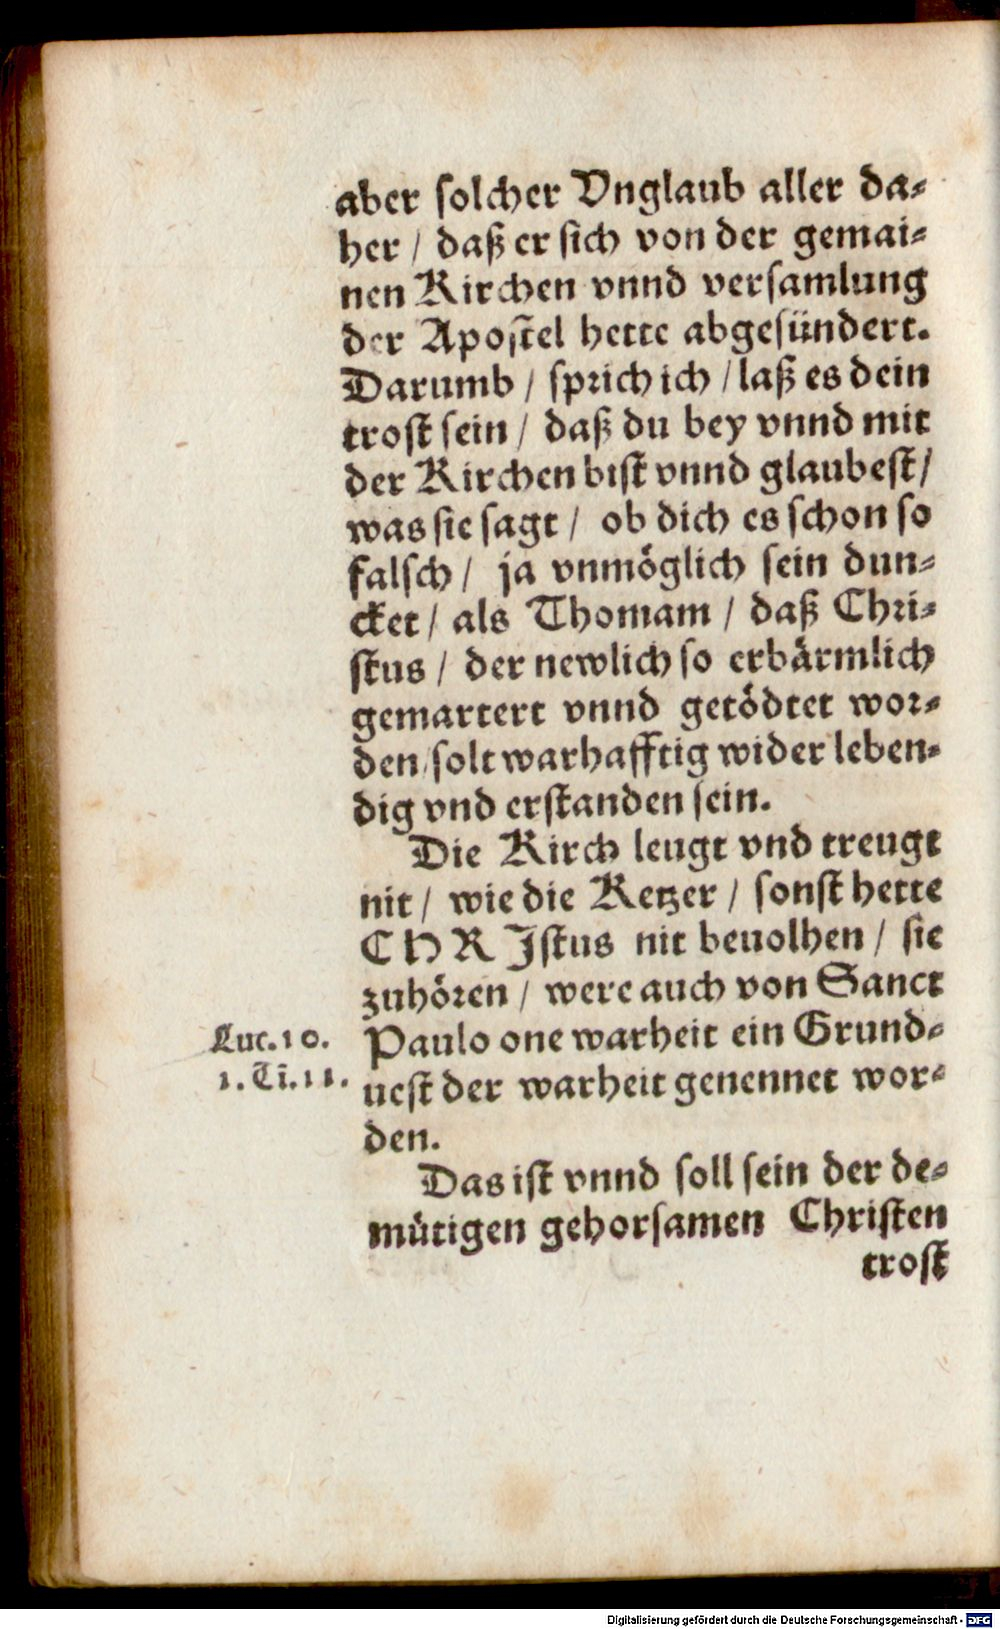 aber solcher Vnglaub aller da⸗
her / daß er sich von der gemai⸗
nen Kirchen vnnd versamlung
der Apostel hette abgesündert.
Darumb / sprich ich / laß es dein
trost sein / daß du bey vnnd mit
der Kirchen bist vnnd glaubest /
was sie sagt / ob dich es schon so
falsch / ja vnmöglich sein dun⸗
cket / als Thomam / daß Chri⸗
stus / der newlich so erbärmlich
gemartert vnnd getödtet wor⸗
den / solt warhafftig wider leben⸗
dig vnd erstanden sein.
Die Kirch leugt vnd treugt
nit / wie die Ketzer / sonst hette
CHRIstus nit beuolhen / sie
zuhören / were auch von Sanct
Luc. 10. Paulo one warheit ein Grund⸗
1. Ti. 11. uest der warheit genennet wor⸗
den.
Das ist vnnd soll sein der de⸗
mütigen gehorsamen Christen
trost
Digitalisierung gefördert durch die Deutsche Forschungsgemeinschaft - DFG